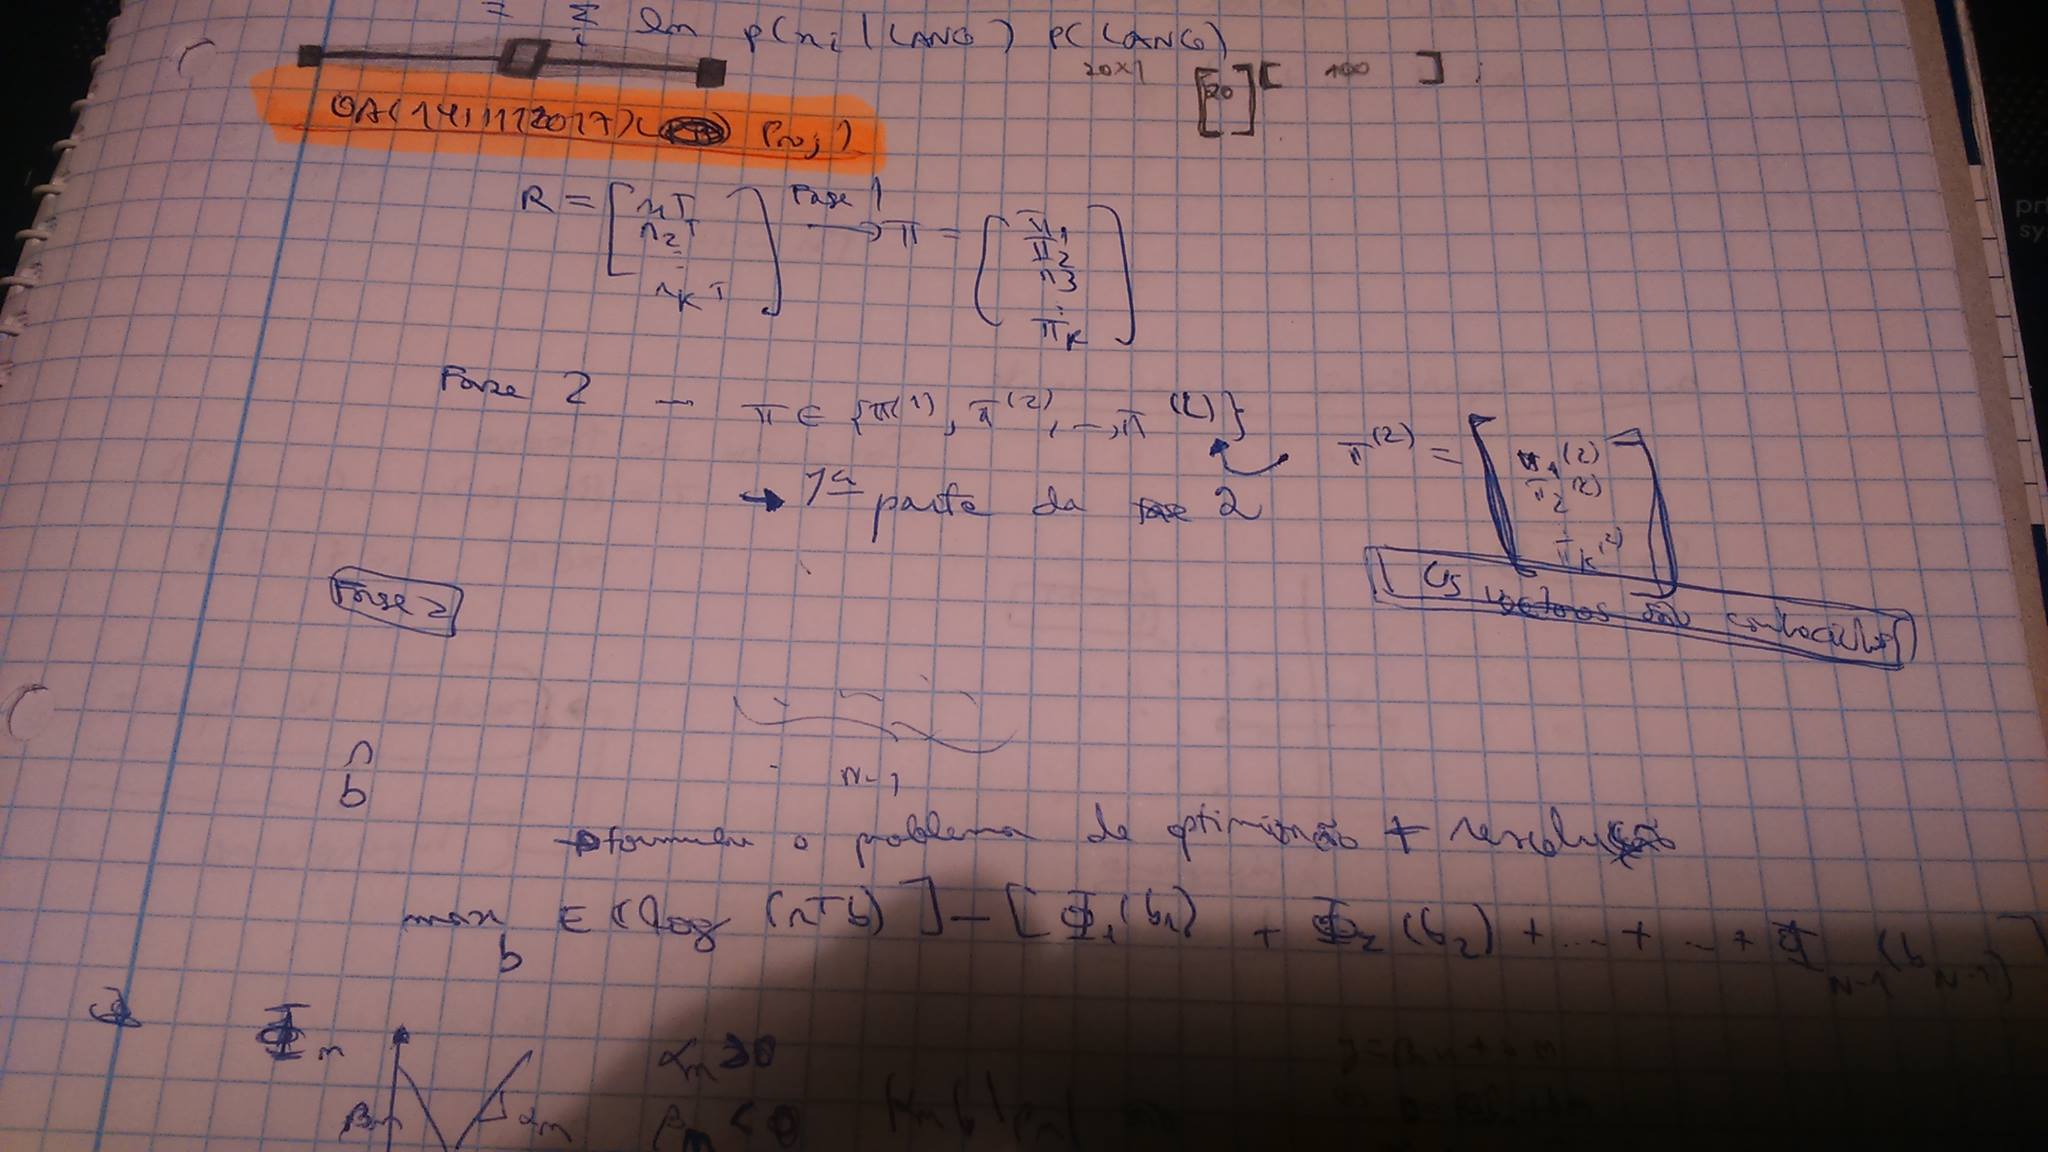 = Σ_i ln p(x_i | LANG) p(LANG)
20x1 [20] [ 100 ]
OA (14/11/2017) Proj 1
R = [ r_1^T r_2^T ⋮ r_K^T ] Fase 1 → π = [ π_1 π_2 π_3 ⋮ π_K ]
Fase 2 — π ∈ {π^(1), π^(2), –, π^(L)}
π^(2) = [ π_1^(2) π_2^(2) ⋮ π_K^(2) ]
→ 1ª parte da fase 2
Os vectores são conhecidos
Fase 2
N-1
b̂
→ formular o problema de optimização + resolução
max_b E (log (r^T b) ] – [ Φ_1 (b_1) + Φ_2 (b_2) + ... + ... + Φ_{N-1} (b_{N-1}) ]
Φ_n
α_n ≥ 0
β_n α_n β_n < 0